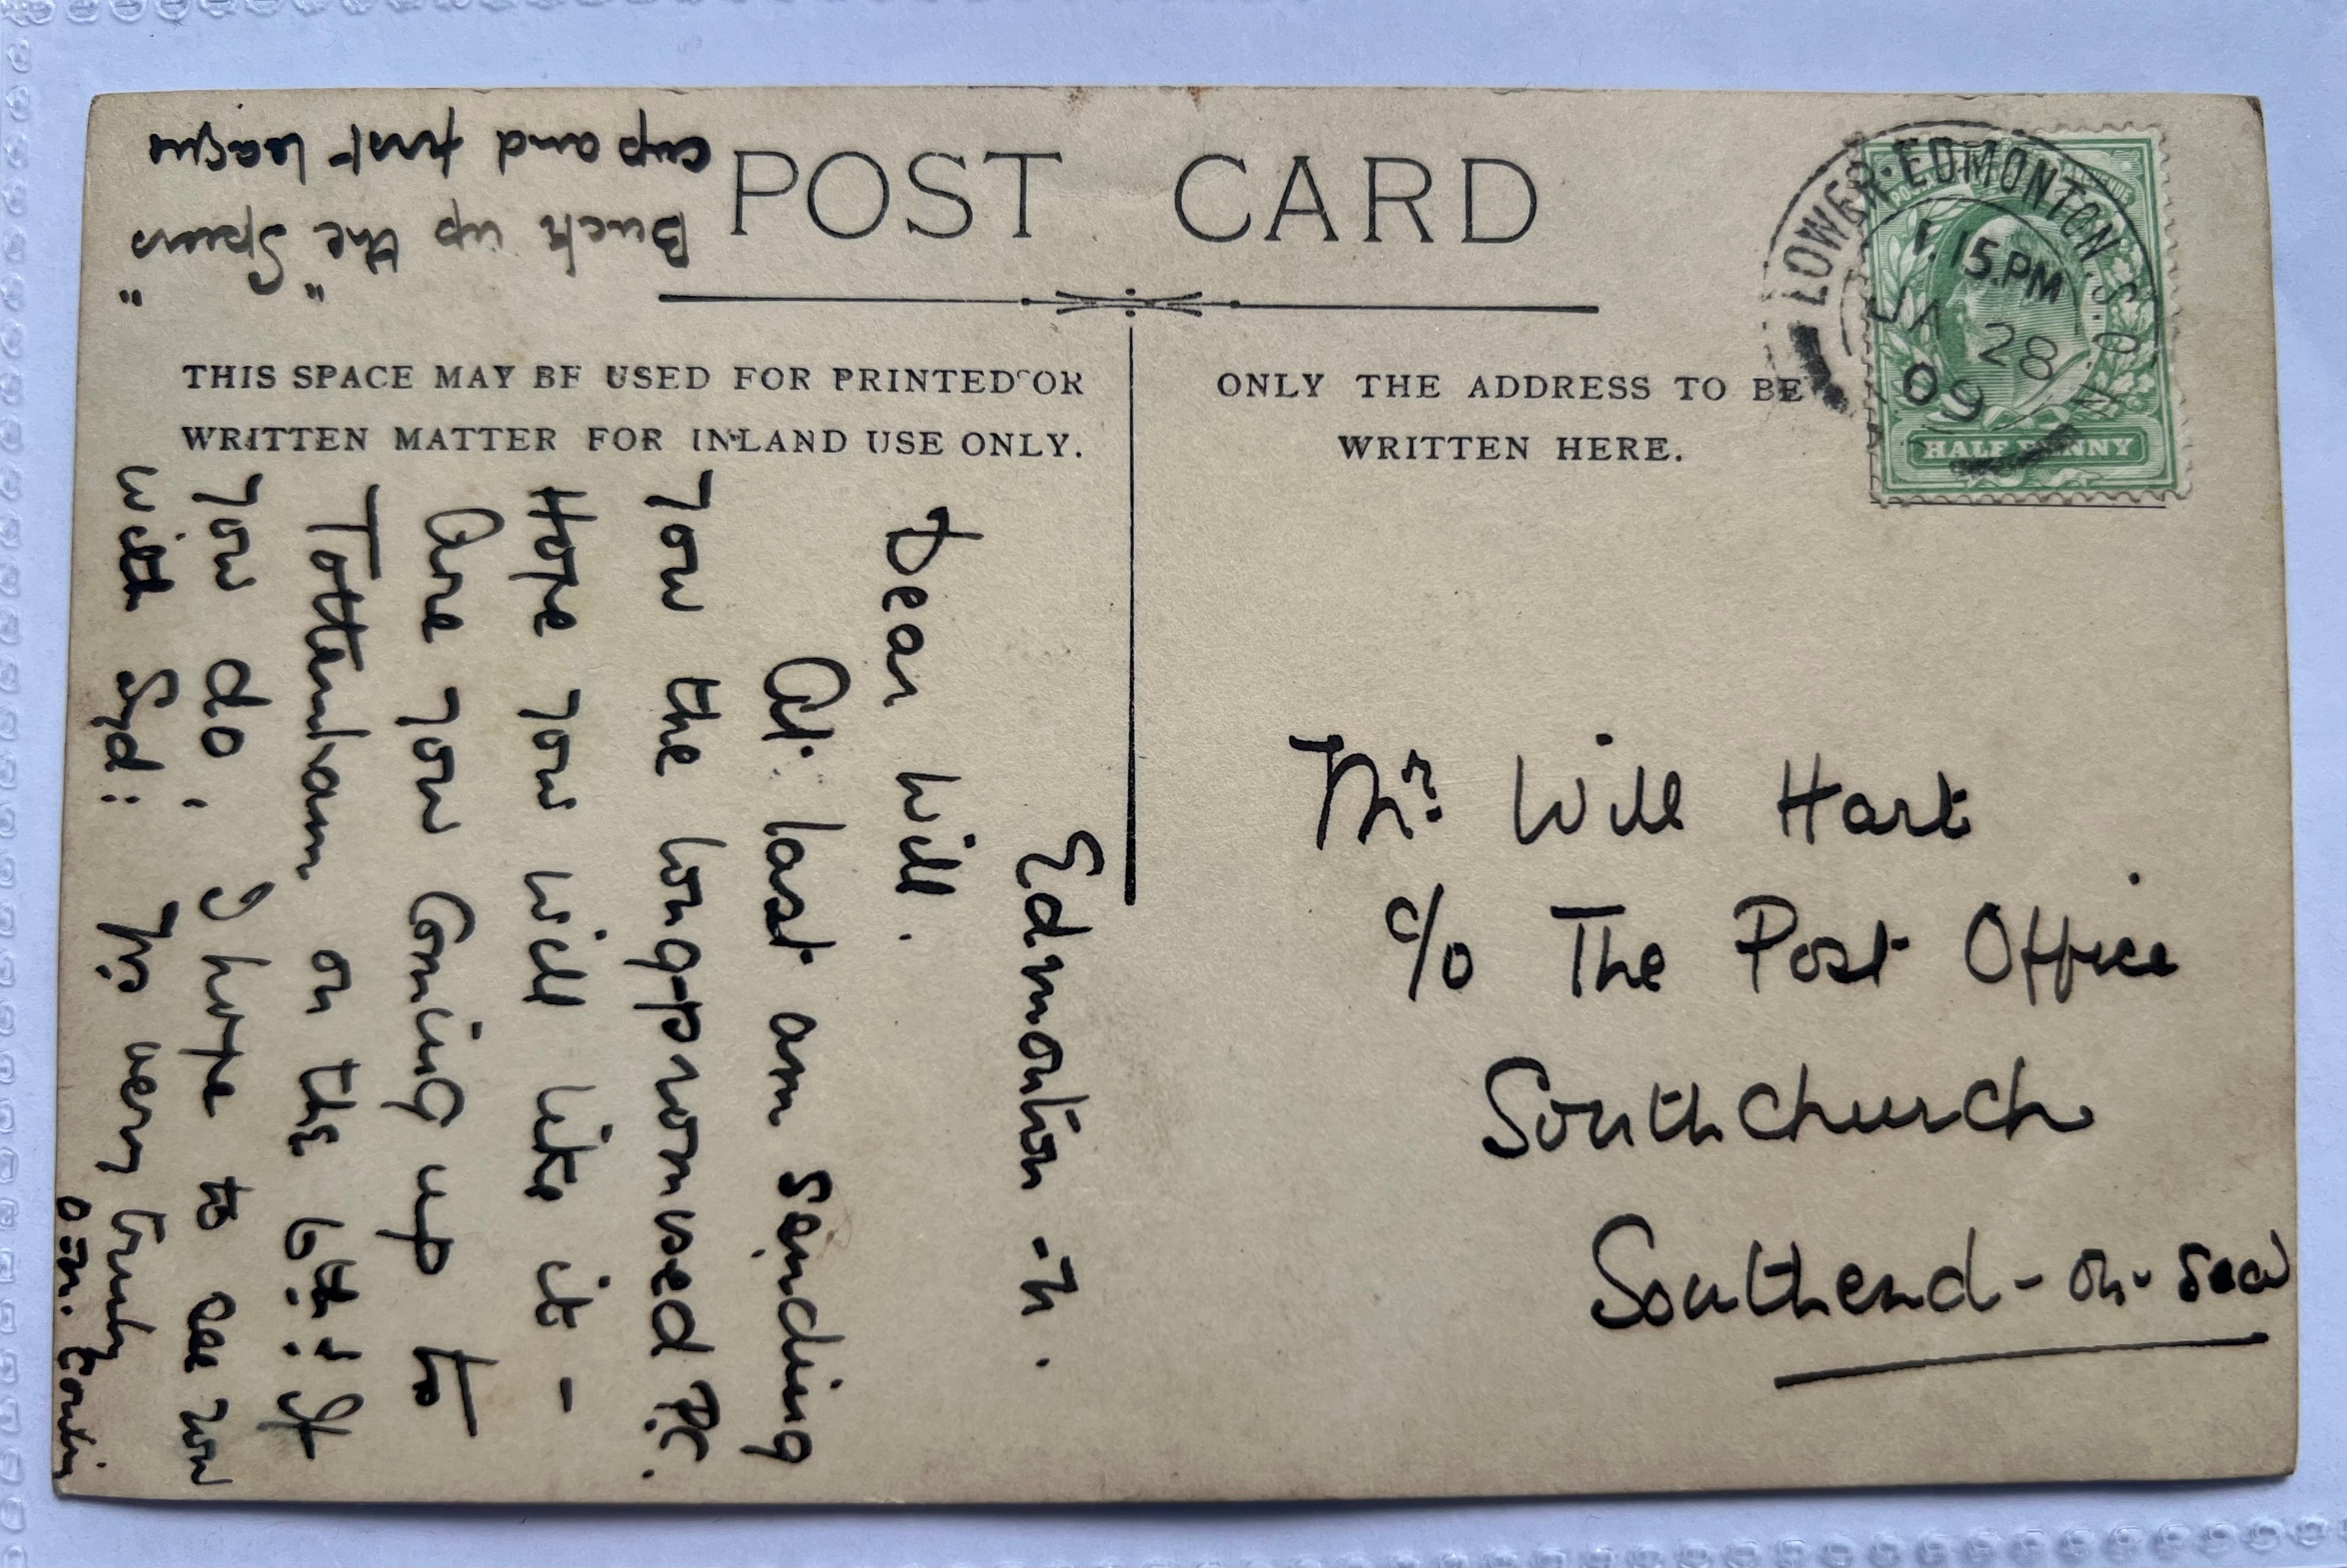 POST CARD
THIS SPACE MAY BE USED FOR PRINTED OR
WRITTEN MATTER FOR INLAND USE ONLY.
ONLY THE ADDRESS TO BE
WRITTEN HERE.
LOWER EDMONTON S.O. N
1.15 PM
JA 28
09
HALF PENNY
Mr. Will Hart
c/o The Post Office
Southchurch
Southend-on-Sea
Edmonton - N.
Dear Will.
At last am sending
You the long-promised P.C.
Hope you will like it -
Are you coming up to
Tottenham on the 6th? If
You do, I hope to see you
with Syd: Yrs very truly
Buck up the "Spurs"
cup and first league